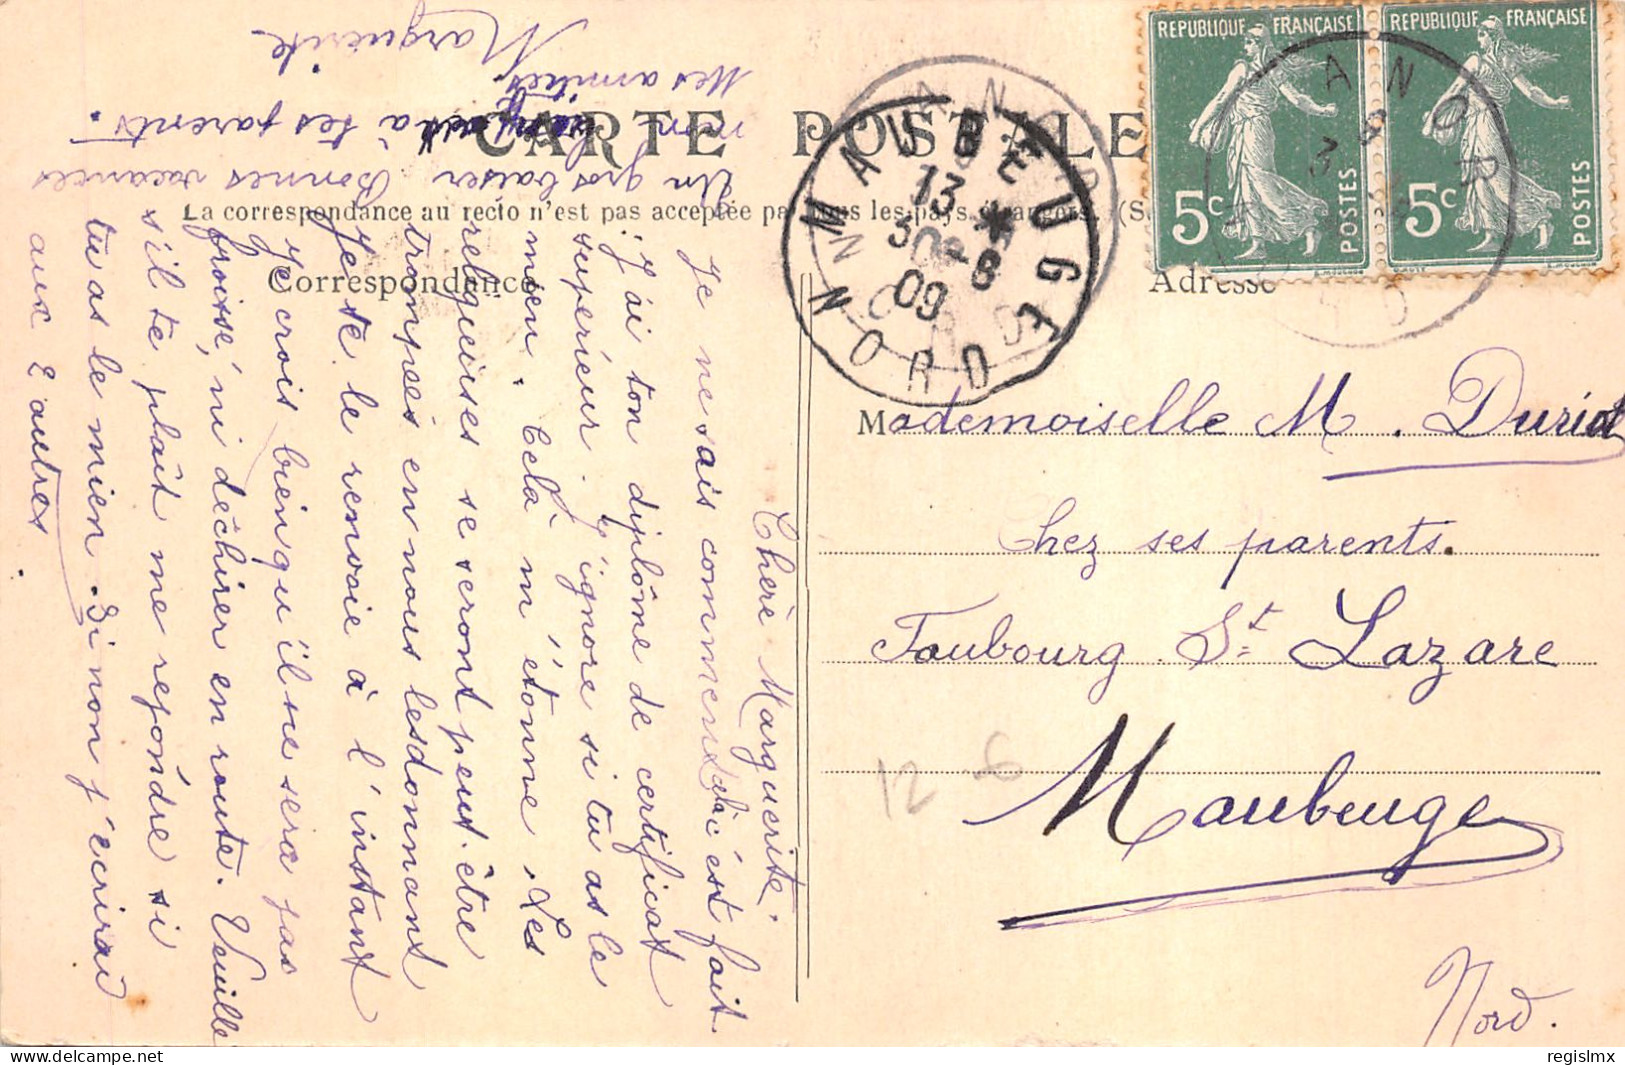 REPUBLIQUE FRANÇAISE
5c POSTES
REPUBLIQUE FRANÇAISE
5c POSTES
CARTE POSTALE
La correspondance au recto n'est pas acceptée par tous les pays étrangers. (S
Correspondance
Adresse
MAUBEUGE
13 *
30-8
09
NORD
ANOR
NORD
Mademoiselle M. Duriot
Chez ses parents.
Faubourg St Lazare
Maubeuge
Nord.
12 -6
Chère Marguerite.
Je ne sais comment c'est fait
j'ai ton diplôme de certificat
supérieur. J'ignore si tu as le
mien. Celà m'étonne. Les
religeuses se seront peut-être
trompées en nous les donnant
Je te le renvoie à l'instant
Je crois bien qu'il ne sera pas
froissé, ni déchirer en route. Veuille
s'il te plaît me répondre si
tu as le mien. Si non j'écrirai
aux 2 autres.
Un gros baiser Bonnes vacances
mon à tes parents.
Mes amitiés
Marguerite
regislmx